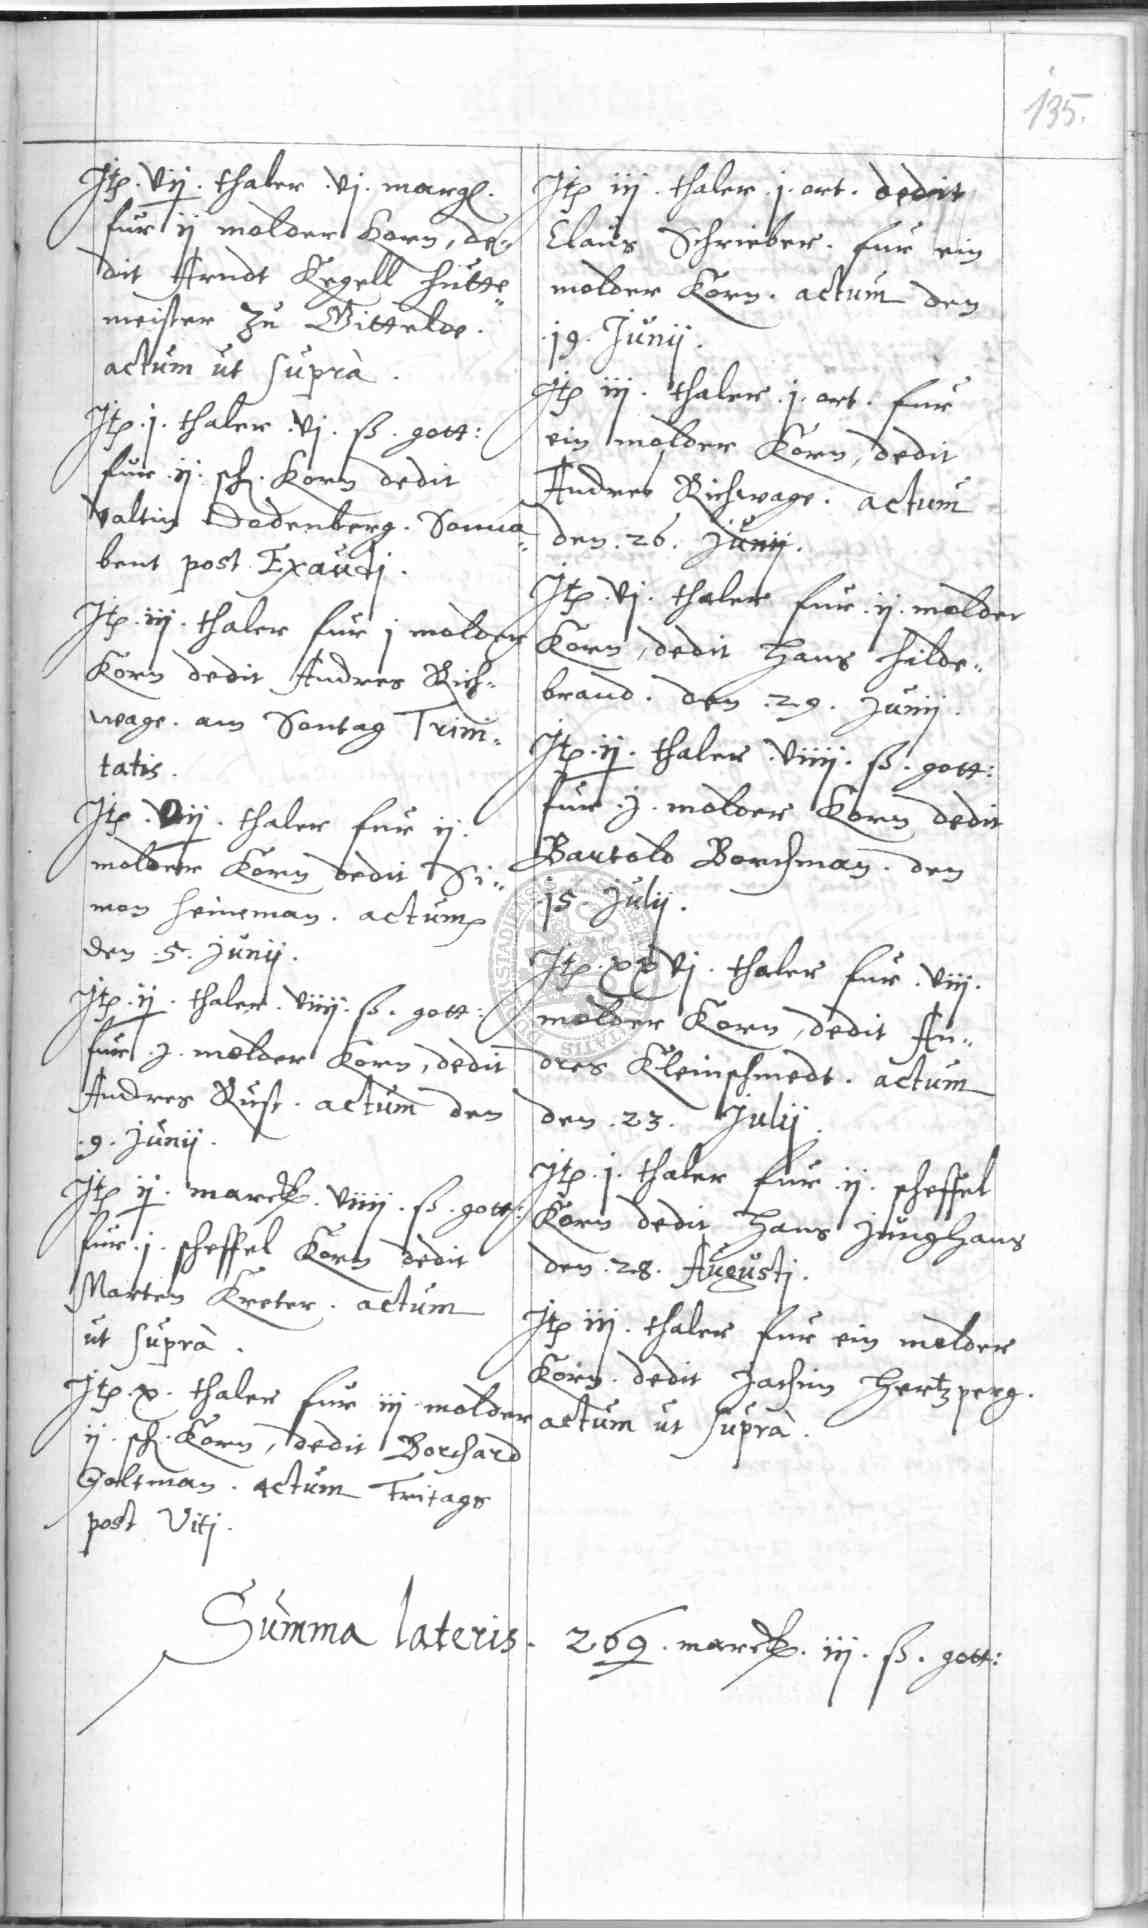 135.
Jtz. Vij. thaler. vj. margl.
fur ij molder Korn, de=
dit Arndt Kegell hutte=
meister zu Gittelde.
actum ut supra.
Jtz. j. thaler. vj. ß. gott:
fur. ij. sch. Korn dedit
Valtin Dodenberg. Sonna=
bent post Exaudj.
Jtz. iij. thaler fur j molder
Korn dedit Andres Rich=
wage. am Sontag Trini=
tatis.
Jtz. Vij. thaler fur ij.
molder Korn dedit Si=
mon Heineman. actum
den. 5. Junij.
Jtz. ij. thaler. viiij. ß. gott:
fur. j. molder Korn, dedit
Andres Rust. actum den
.9. Junij.
Jtz ij. marck. viiij. ß. gott:
fur. j. scheffel Korn dedit
Marten Kreter. actum
ut supra.
Jtz. x. thaler fur iij molder
ij. sch. Korn, dedit Borchard
Goltman. actum Fritags
post Vitj.
Jtz iij. thaler. j. ort. dedit
Claus Schrieber. fur ein
molder Korn. actum den
.19. Junij.
Jtz iij. thaler. j. ort. fur
ein molder Korn, dedit
Andres Richwage. actum
den. 26. Junij.
Jtz. vj. thaler fur. ij. molder
Korn, dedit Hans Hilde=
brand. den. 29. Junij.
Jtz. ij. thaler. viiij. ß. gott:
fur. j. molder Korn dedit
Bartold Borchman. den
.15. Julij.
Jtz. xxvj. thaler fur. viij.
molder Korn, dedit An=
dres Kleinschmedt. actum
den. 23. Julij.
Jtz. j. thaler fur. ij. scheffel
Korn dedit Hans Junghans
den. 28. Augustj.
Jtz iij. thaler fur ein molder
Korn. dedit Jachim Hertzperg.
actum ut supra.
Summa lateris. 269. marck. iij. ß. gott: